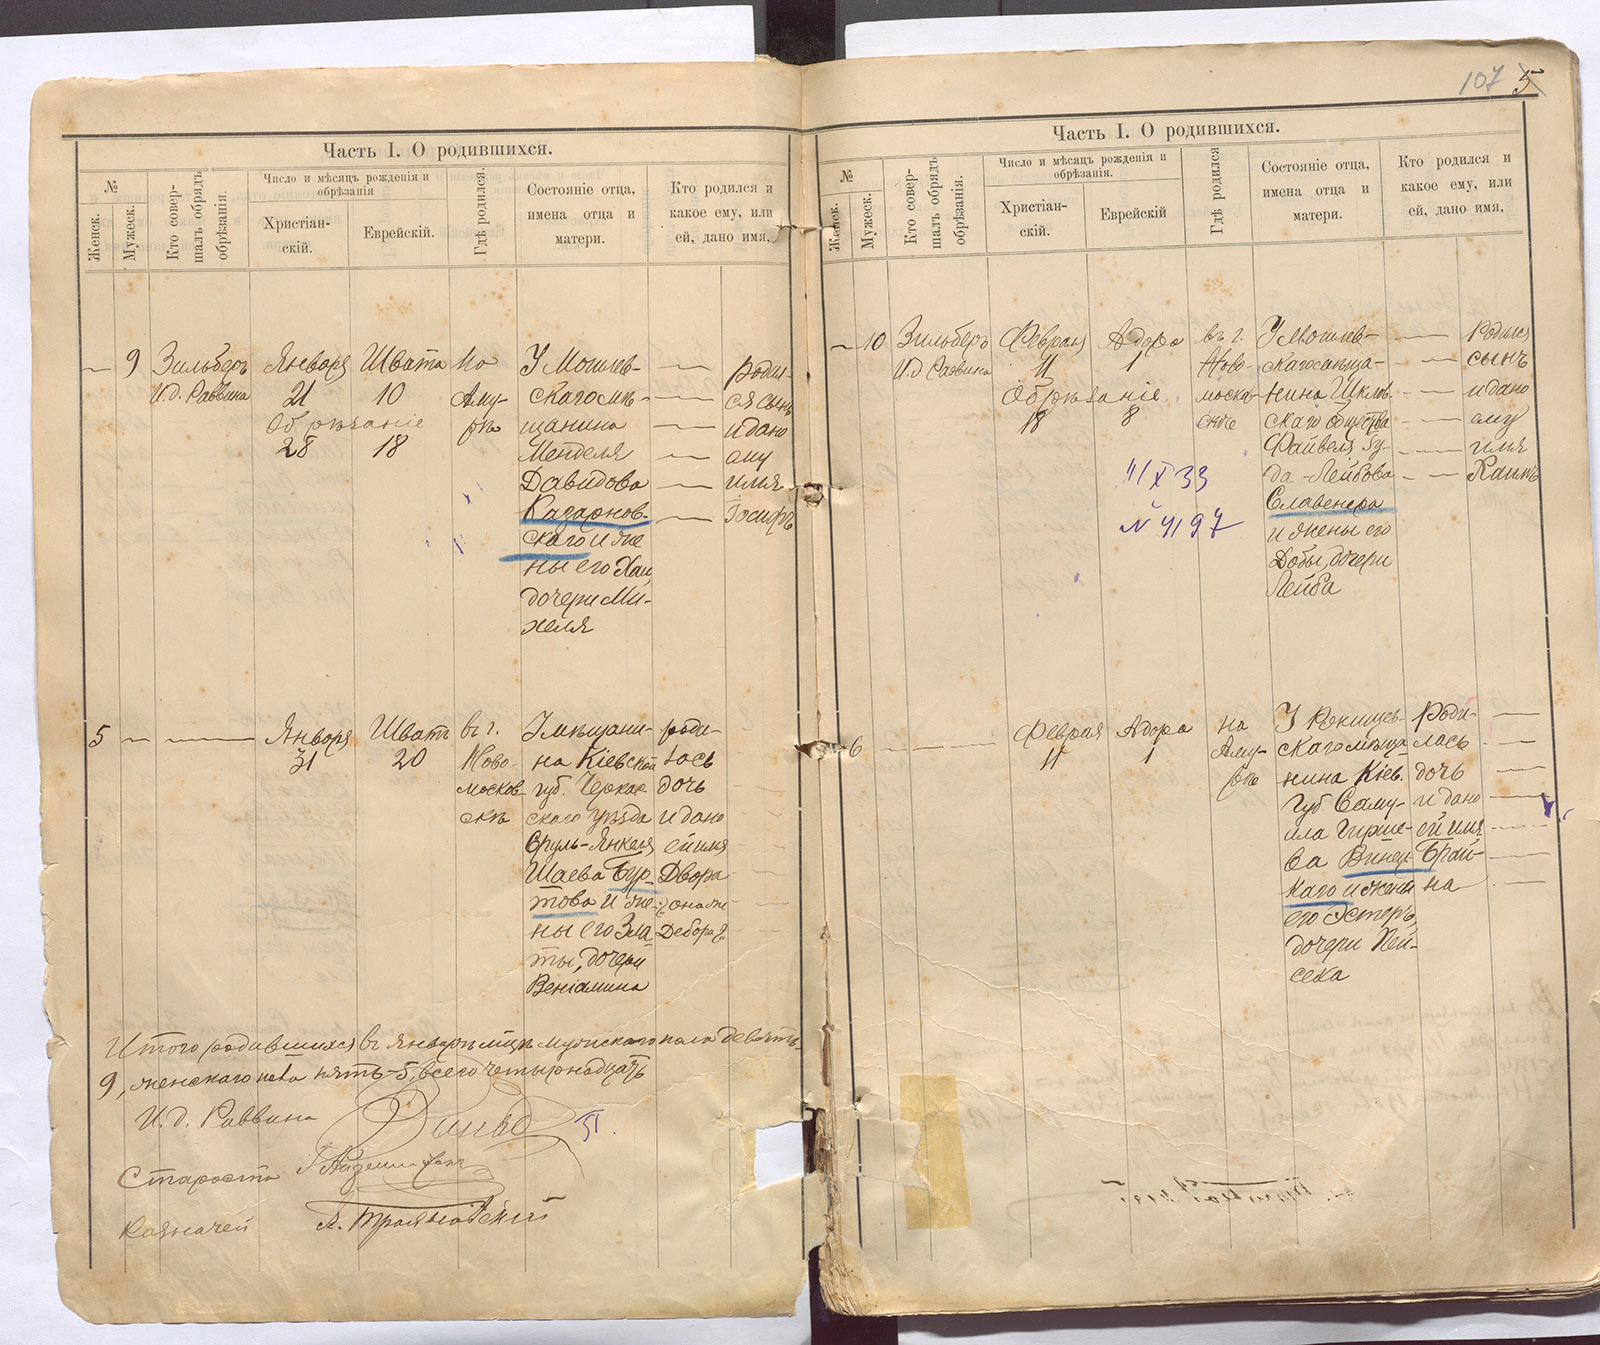 Часть I. О родившихся.
№
Женск.
Мужеск.
Кто совер-
шалъ обрядъ
обрѣзанія.
Число и мѣсяцъ рожденія и
обрѣзанія
Христіан-
скій.
Еврейскій.
Гдѣ родился.
Состояніе отца,
имена отца и
матери.
Кто родился и
какое ему, или
ей, дано имя.
9
Зильберъ
И.д. Раввина
Января
21
Обрѣзаніе
28
Швата
10
18
На
Аму-
рѣ
У Могилев-
скаго мѣ-
щанина
Менделя
Давидова
Казарнов-
скаго и же
ны его Хаи,
дочери Ми-
хеля
роди-
ся сынъ
и дано
ему
имя
Іосифъ
5
Января
31
Шватъ
20
въ г.
Ново-
москов-
скѣ
У мѣщани-
на Кіевской
губ. Черкас
скаго уѣзда
Сруль-Янкеля
Шаева Бур-
това и же-
ны его Зла-
ты, дочери
Веніамина
роди-
лась
дочь
и дано
ей имя
Двора
она же
Дебора
Итого родившихся въ Январѣ мцѣ мужскаго пола девять-
9, женскаго пола пять-5, всего четырнадцать
И. д. Раввина
Староста
Казначей
107 5
Часть I. О родившихся.
№
Женск.
Мужеск.
Кто совер-
шалъ обрядъ
обрѣзанія.
Число и мѣсяцъ рожденія и
обрѣзанія.
Христіан-
скій.
Еврейскій
Гдѣ родился
Состояніе отца,
имена отца и
матери.
Кто родился и
какое ему, или
ей, дано имя,
10
Зильберъ
И.д Раввина
Февраля
11
Обрѣзаніе
18
Адара
1
8
въ г.
Ново-
москов-
скѣ
У Могилев-
скаго мѣща-
нина Шклов.
скаго общества
Файвеля Гу-
да-Лейбова
Славенера
и жены его
Добы, дочери
Лейба
Родился
сынъ
и дано
ему
имя
11 X 33
№ 4197
6
Февраля
11
Адара
1
на
Аму-
рѣ
У Ржищев-
скаго мѣща
нина Кіев.
губ Саму-
ила Гирше-
ва Винец-
каго и жены
его Эстеръ,
дочери Пей-
сеха
Роди-
лась
дочь
и дано
ей имя
Брай-
на